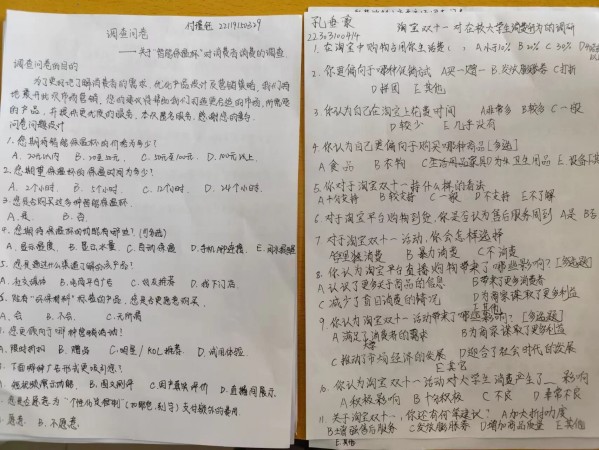 调查问卷
付耀红 22119150329
——关于"智能保温杯"对消费者消费的调查
调查问卷的目的
为了更好地了解消费者的需求，优化产品设计及营销策略，我们
的产品，并提供更优质的服务，本次匿名服务，感谢您的
问卷问题设计
1. 您期待智能保温杯的价格为多少？
A. 20元以内 B. 20至50元， C. 50元至100元. D. 100元以上.
2. 您期望保温杯的保温时间为多少？
A. 2个小时. B. 5个小时. C. 12个小时. D. 24个小时.
3. 您是否购买过多种智能保温杯.
A. 是. B. 否.
4. 您期待保温杯的功能有哪些？(可多选)
A. 显示温度. B. 显示水量. C. 自动保温 D. 手机APP连接. E.
5. 您是通过什么渠道了解的该产品？
A. 社交媒体 B. 电商平台广告 C. 朋友推荐 D. 线下门店
6. 贴有"环保材料"标签的产品，您是否更愿意购买.
A. 会 B. 不会. C. 无所谓
7. 您更倾向于哪种营销活动！
A. 限时折扣 B. 赠品 C. 明星/KOL推荐. D. 试用体验.
8. 下面哪种广告形式更吸引您？
A. 短视频展示功能. B. 图文测评 C. 用户真实评价 D. 直播间展示.
您是否愿意为"个性化定制"(如颜色、刻字)支付额外的费用
A. 愿意. B. 不愿意.
孔垂豪
22303100414
淘宝双十一对在校大学生消费行为的调研
1. 在淘宝中购物占用你生活费( ) A. 小于10% B 20% C 30% D
2. 你更偏向于哪种促销方式 A买一赠一 B. 发放优惠券 C打折
D拼团 E其他
3. 你认为自己在淘宝上花费时间 A非常多 B较多 C一般
D较少 E几乎没有
4. 你认为自己更偏向于购买哪种商品[多选]
A食品 B衣物 C生活用品家具 D卫生用品 E
5. 你对于淘宝双十一持什么样的看法
A十分支持 B较支持 C一般 D不支持 E不了解
6. 对于淘宝平台购物到货，你是否认为售后服务周到 A是 B否
7. 对于淘宝双十一活动，你会怎样选择
A理智消费 B暴力消费 C不消费
8. 你认为淘宝平台直播购物带来了哪些影响？[多选题]
A认识了更多关于商品的信息 B带来了更多消费者
C减少了盲目消费的情况 D为商家谋取了更多利益
E其他
9. 你认为淘宝双十一活动带来了哪些影响？[多选题]
A满足了消费者的需求 B为商家谋取了更多利益
C推动了市场经济的发展 D迎合了社会时代的发展
E其它
10. 你认为淘宝双十一活动对大学生消费产生了__影响
A积极影响 B十分积极 C不良 D非常不良
11. 关于淘宝双十一，你还有何等建议？ A加大折扣力度
B增强售后服务 C发放优惠券 D增加商品质量 E其他
E. 其他